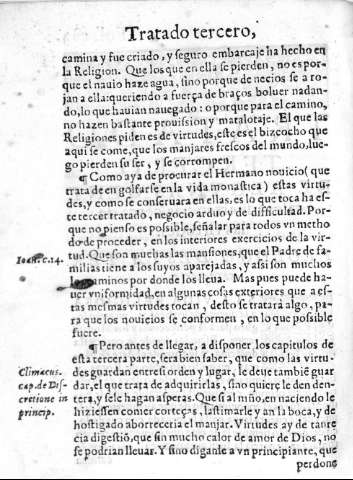 Tratado tercero,
camina y fue criado, y seguro embarcaje ha hecho en
la Religion. Que los que en ella se pierden, no es por-
que el nauio haze agua, sino porque de necios se a ro-
jan a ella: queriendo a fuerça de braços boluer nadan-
do, lo que hauian nauegado: o porque para el camino,
no hazen bastante prouission y matalotaje. El que las
Religiones piden es de virtudes, este es el bizcocho que
aqui se come, que los manjares frescos del mundo, lue-
go pierden su ser, y se corrompen.
¶ Como aya de procurar el Hermano nouicio (que
trata de en golfarse en la vida monastica) estas virtu-
des, y como se conseruara en ellas, es lo que toca ha es-
te tercer tratado, negocio arduo y de difficultad. Por-
que no pienso es possible, señalar para todos vn metho
do de proceder, en los interiores exercicios de la vir-
Ioan. c. 14.
tud. Que son muchas las mansiones, que el Padre de fa-
milias tiene a los suyos aparejadas, y asi son muchos
los caminos por donde los lleua. Mas pues puede ha-
uer vniformidad, en algunas cosas exteriores que a es-
tas mesmas virtudes tocan, desto se tratarà algo, pa-
ra que los nouicios se conformen, en lo que possible
fuere.
¶ Pero antes de llegar, a disponer los capitulos de
esta tercera parte, sera bien saber, que como las virtu-
Climacus.
cap. de Dis-
cretione in
princip.
des guardan entre si orden y lugar, le deue tambiē guar
dar, el que trata de adquirirlas, si no quiere le den den-
tera, y se le hagan asperas. Que si al niño, en naciendo le
hiziessen comer corteças, lastimarle y an la boca, y de
hostigado aborreceria el manjar. Virtudes ay de tan re
cia digestiō, que sin mucho calor de amor de Dios, no
se podrian lleuar. Y sino diganle a vn principiante, que
perdone